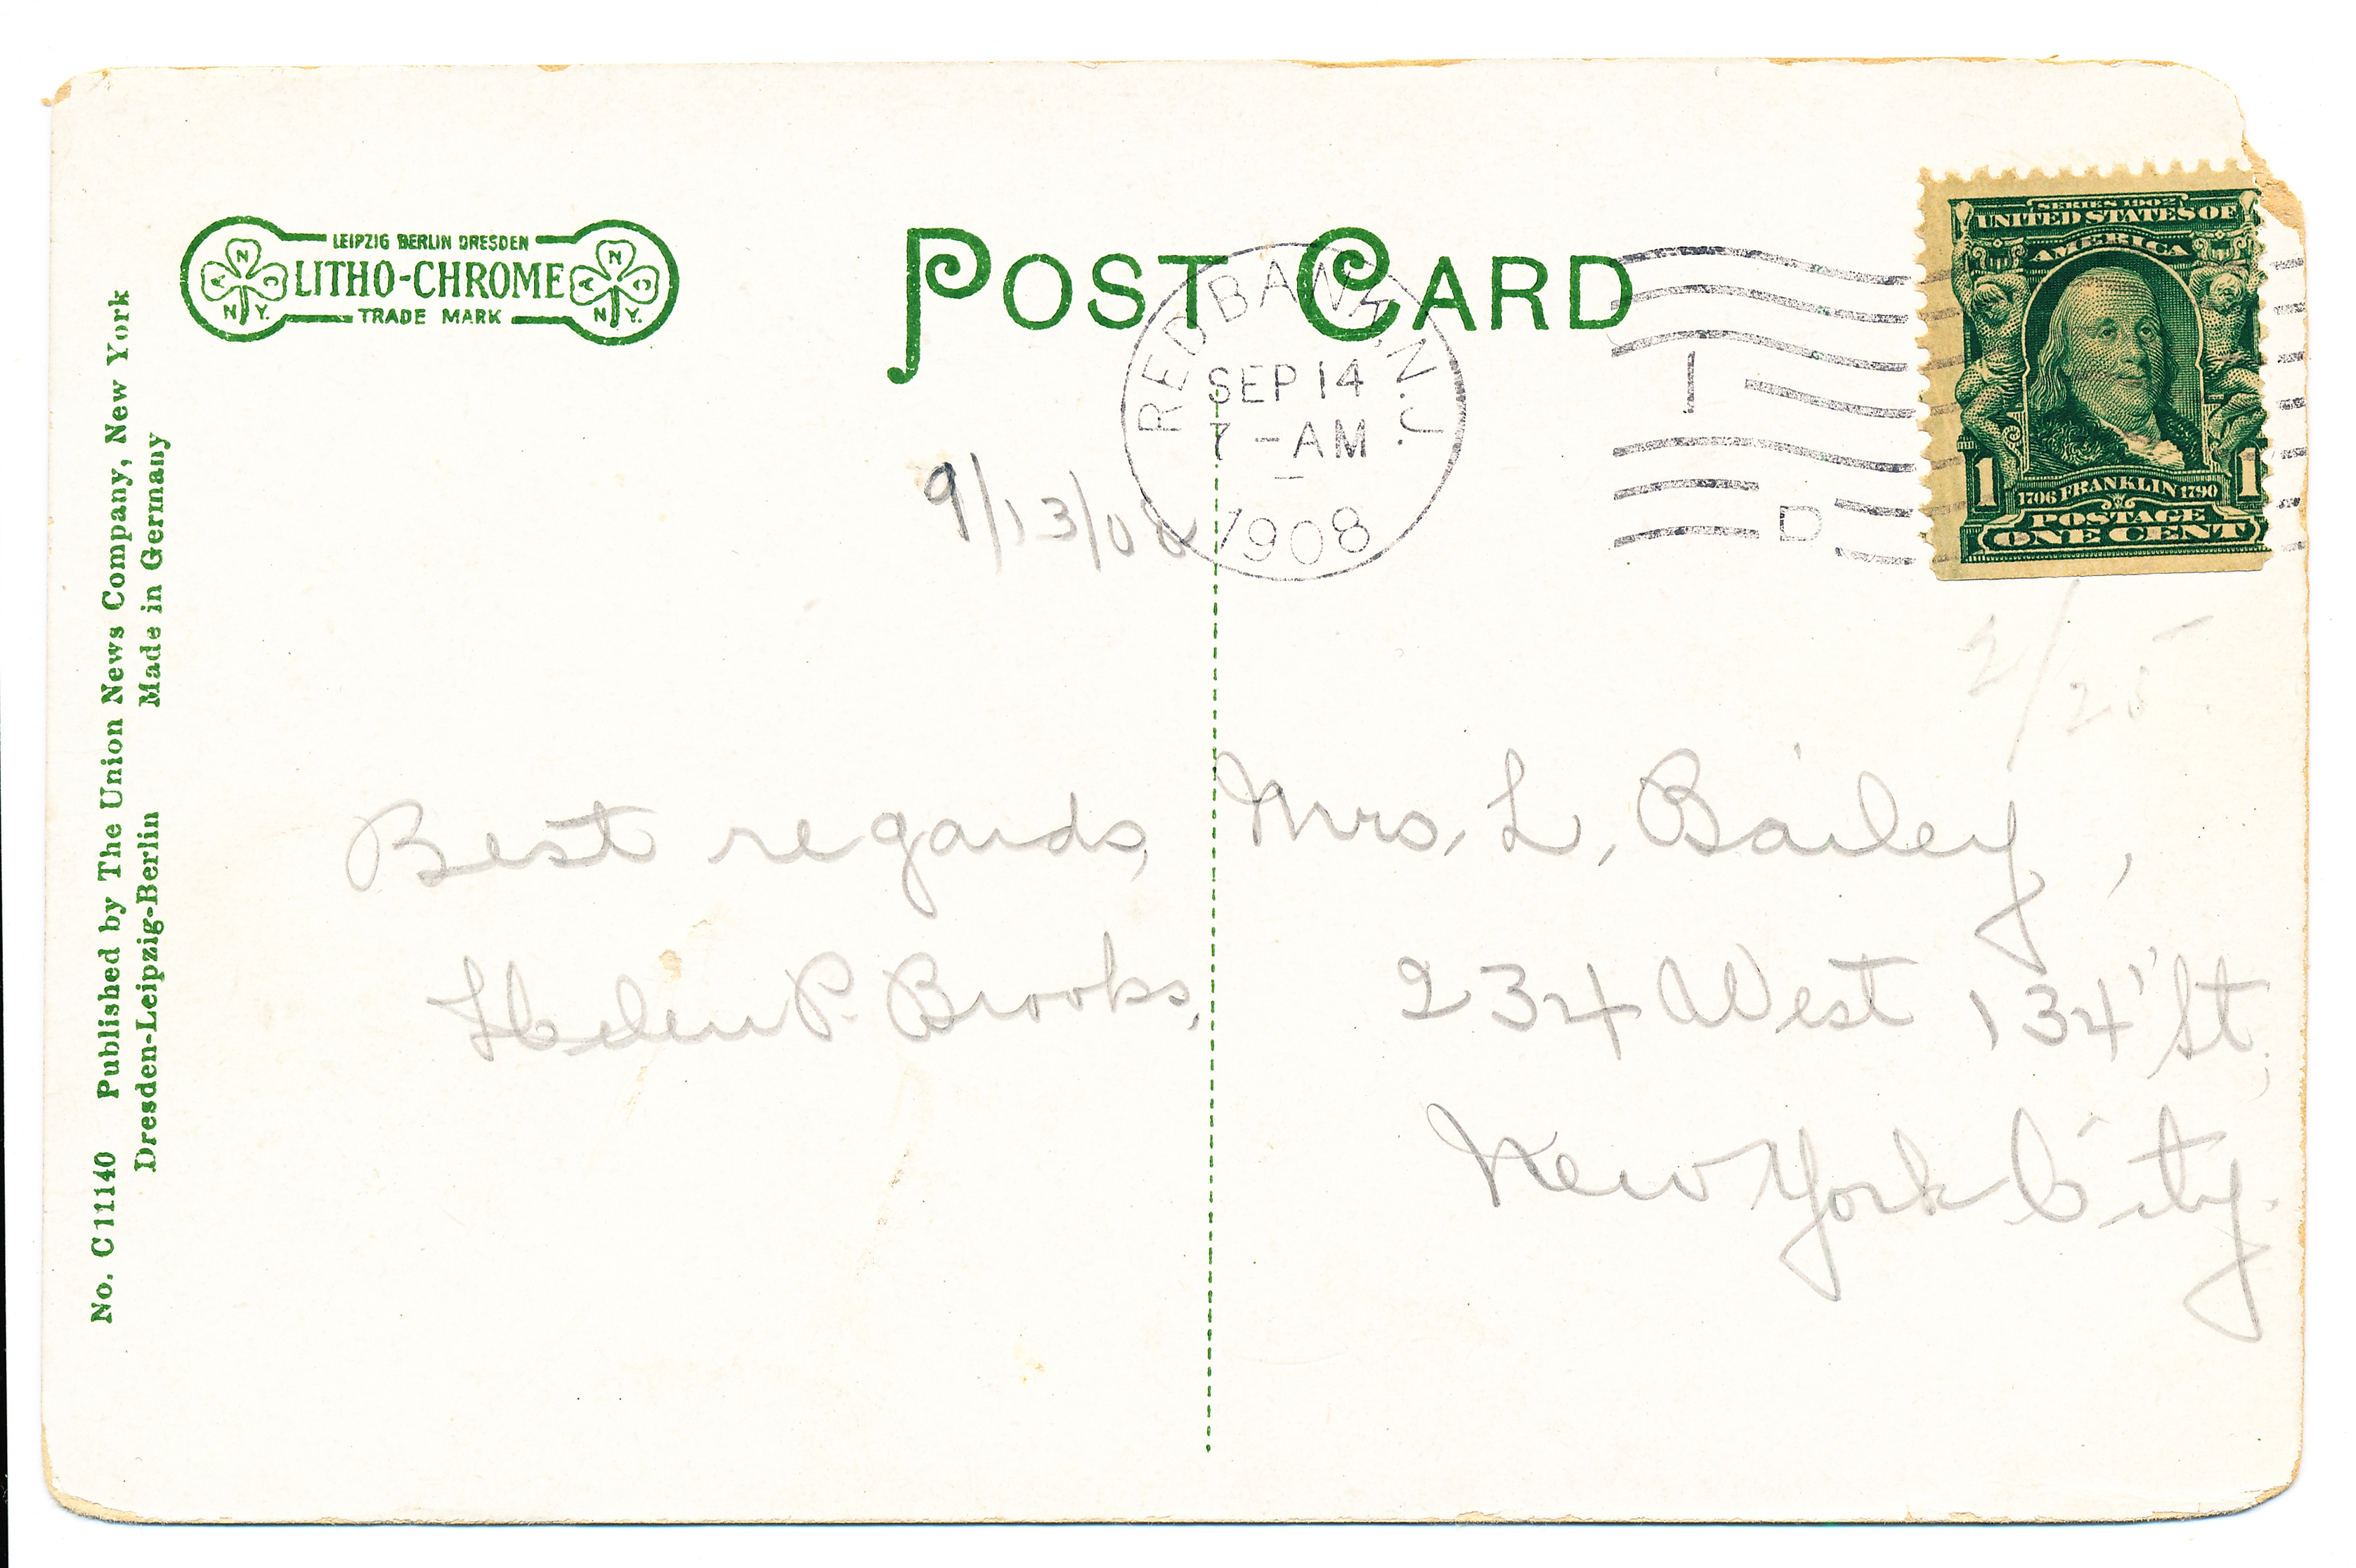 LEIPZIG BERLIN DRESDEN
LITHO-CHROME
TRADE MARK
A N C
N Y.
A N C
N Y.
POST CARD
RED BANK, N.J.
SEP 14
7 - AM
1908
1
D
SERIES 1902
UNITED STATES OF
AMERICA
1 1
1706 FRANKLIN 1790
POSTAGE
ONE CENT
9/13/08
2/25
Best regards,
Helen P. Brooks,
Mrs. L. Bailey,
234 West 134" St.,
New York City.
No. C 11140 Published by The Union News Company, New York
Dresden-Leipzig-Berlin Made in Germany